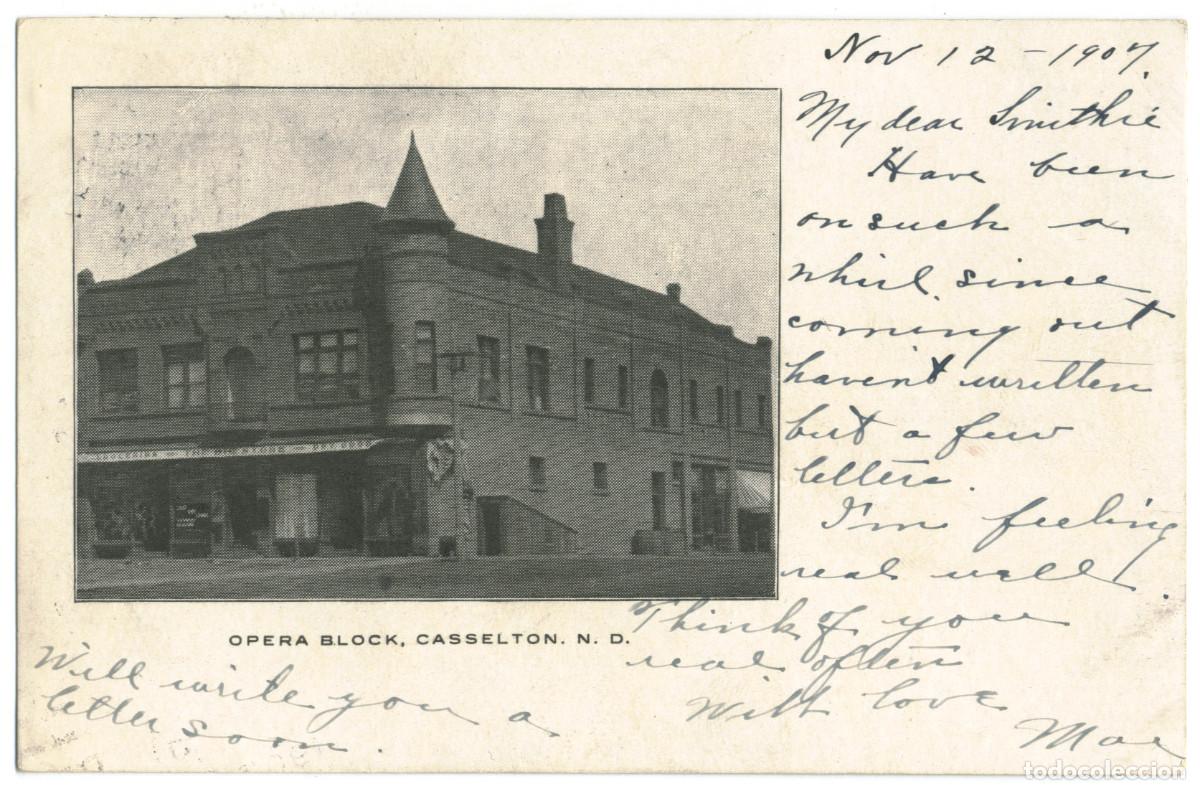 Nov 12 - 1907.
My dear Smithie
Have been
on such a
whirl since
coming out
haven't written
but a few
letters.
I'm feeling
real well.
Think of you
real often
With love
Mae
Will write you a
letter soon.
GROCERIES - THE BIG STORE - DRY GOODS
OPERA BLOCK, CASSELTON. N. D.
todocoleccion